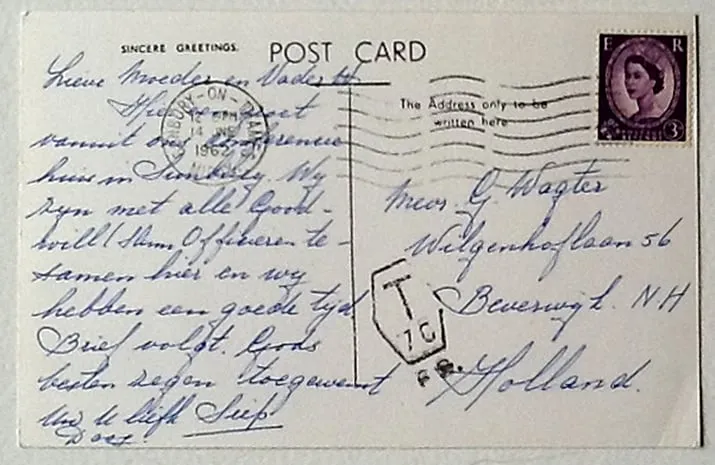 SINCERE GREETINGS.
POST CARD
Lieve Moeder en Vader W
Hier een groet
vanuit ons Conferencie
huis in Sunbury. Wy
zyn met alle Good-
will Officieren te-
samen hier en wy
hebben een goede tyd
Brief volgt. Gods
besten zegen toegewenst
Uw U liefh Siep
SUNBURY-ON-THAMES
12 PM
14 JNE
1962
The Address only to be
written here
E R
3D
Mevr. G Wagter
Wilgenhoflaan 56
Beverwyk. N.H
Holland.
T
7C